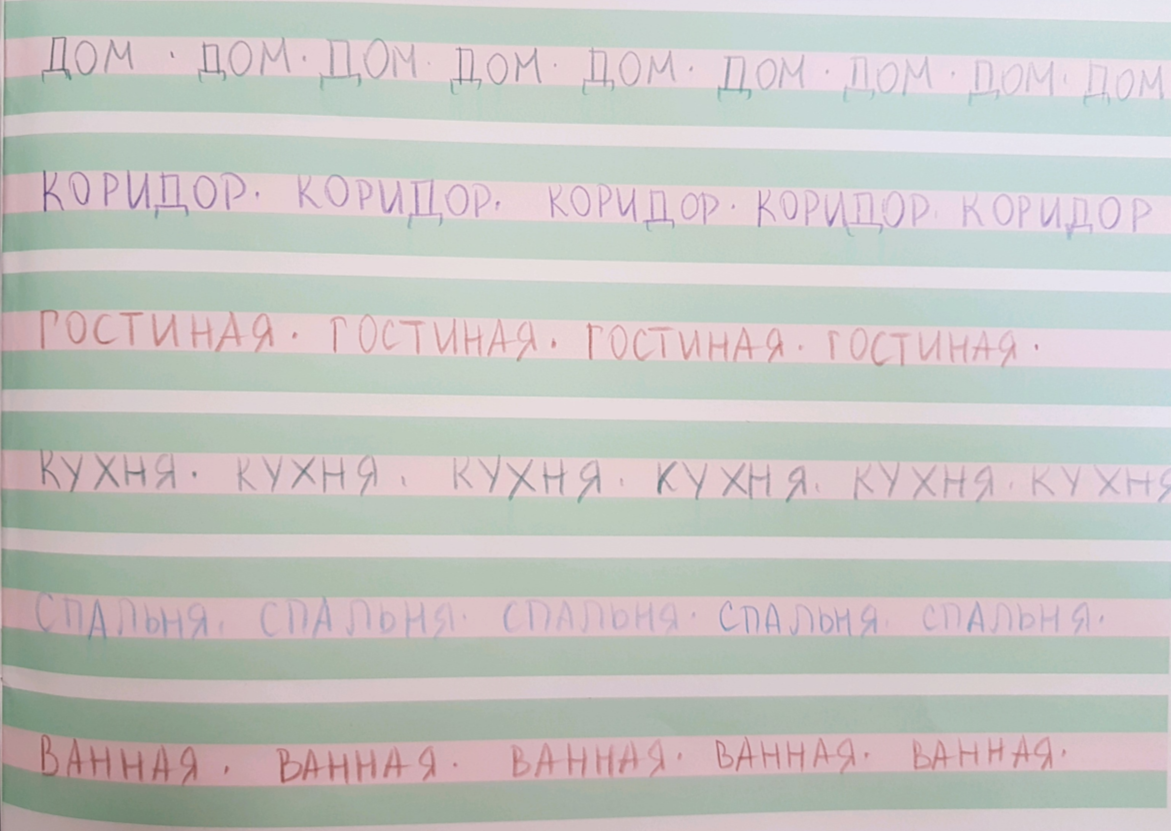 ДОМ · ДОМ · ДОМ · ДОМ · ДОМ · ДОМ · ДОМ · ДОМ · ДОМ
КОРИДОР · КОРИДОР · КОРИДОР · КОРИДОР · КОРИДОР
ГОСТИНАЯ · ГОСТИНАЯ · ГОСТИНАЯ · ГОСТИНАЯ ·
КУХНЯ · КУХНЯ · КУХНЯ · КУХНЯ · КУХНЯ · КУХНЯ
СПАЛЬНЯ · СПАЛЬНЯ · СПАЛЬНЯ · СПАЛЬНЯ · СПАЛЬНЯ ·
ВАННАЯ · ВАННАЯ · ВАННАЯ · ВАННАЯ · ВАННАЯ ·